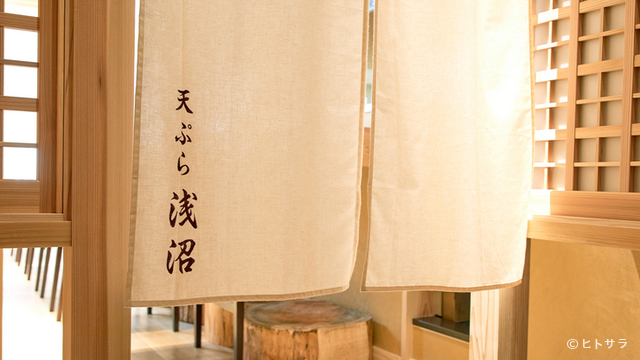 天ぷら 浅沼
©ヒトサラ